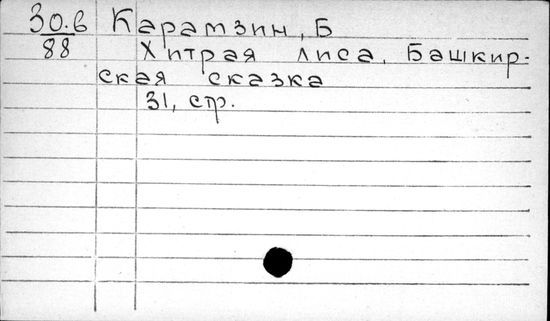 30.в Карамзин, Б
88 Хитрая лиса. Башкир-
ская сказка
31, стр.